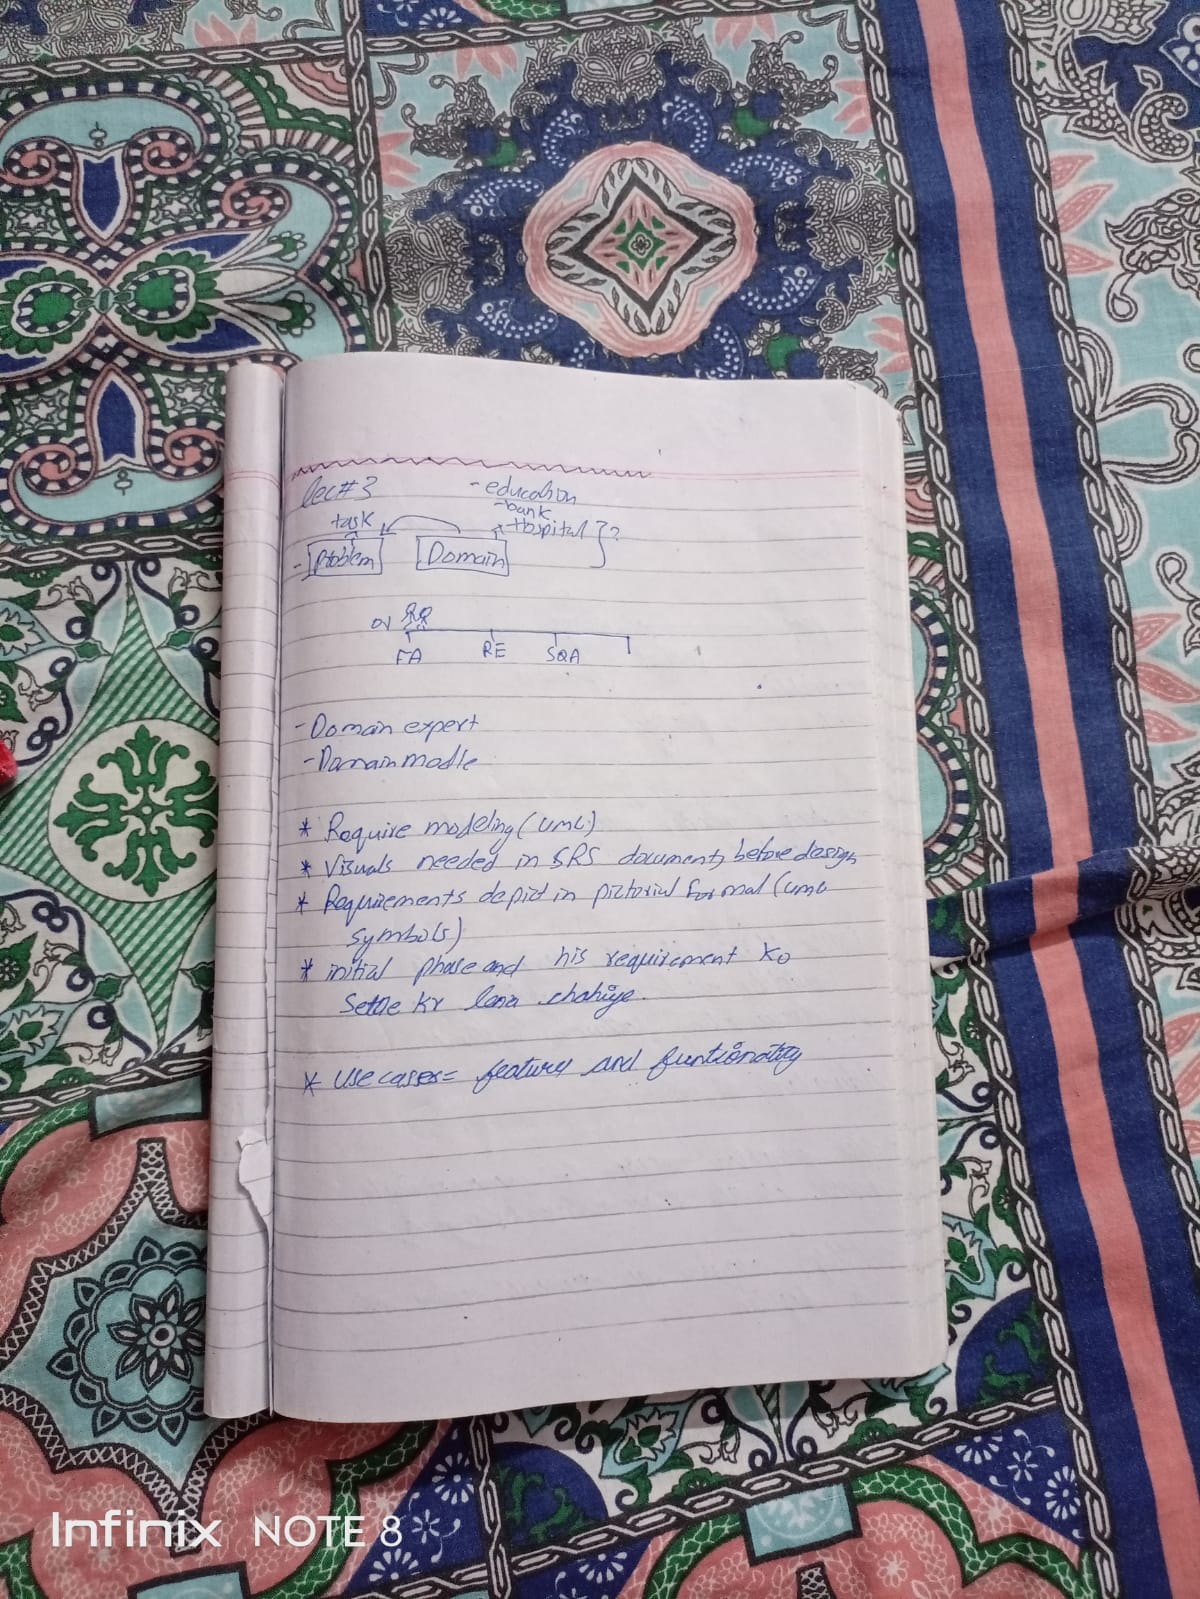 Lec#3
- education
- bank
task
Hospital } ?
- Problem Domain
or
FA RE SQA
- Domain expert
- Domain modle
* Require modeling (UML)
* Visuals needed in SRS document, before design
* Requirements depict in pictorial formal (UML
symbols)
* initial phase and his requirement ko
Settle kr lena chahiye.
* Use cases = features and funtionality
Infinix NOTE 8